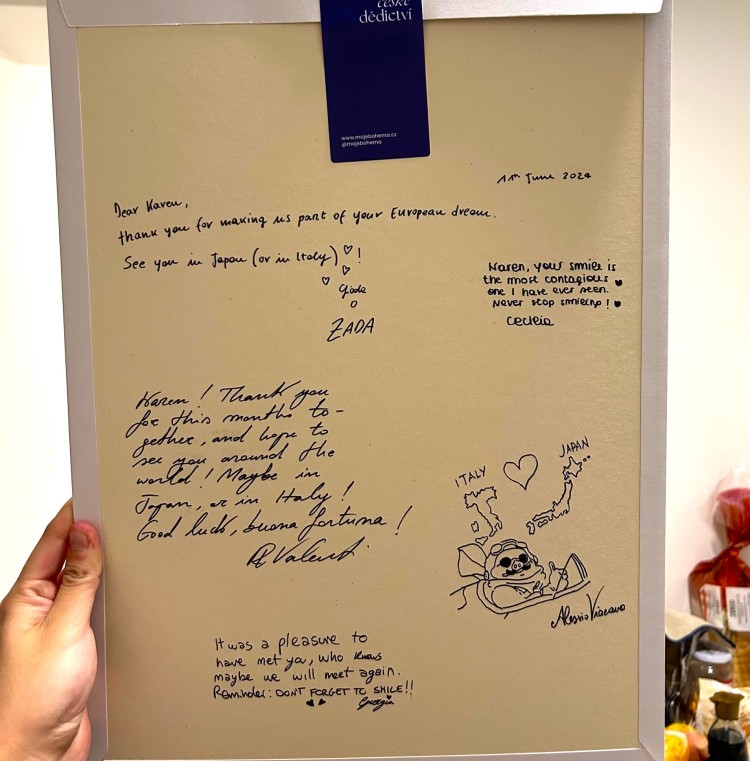 české
dědictví
www.mojebohema.cz
@mojebohema
11th June 2024
Dear Karen,
thank you for making us part of your European dream.
See you in Japan (or in Italy) ♡!
Giada
ZADA
Karen, your smile is
the most contagious
one I have ever seen.
Never stop smiling! ♥
Cecilia
Karen! Thank you
for this months to-
gether, and hope to
see you around the
world! Maybe in
Japan, or in Italy!
Good luck, buona fortuna!
ITALY
JAPAN
Alessio Viacava
It was a pleasure to
have met you, who knows
maybe we will meet again.
Reminder: DON'T FORGET TO SMILE!!
Georgia